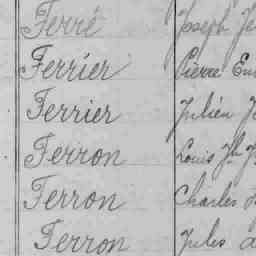 Ferré Joseph
Ferrier Pierre
Ferrier Julien
Ferron Louis
Ferron Charles
Ferron Jules